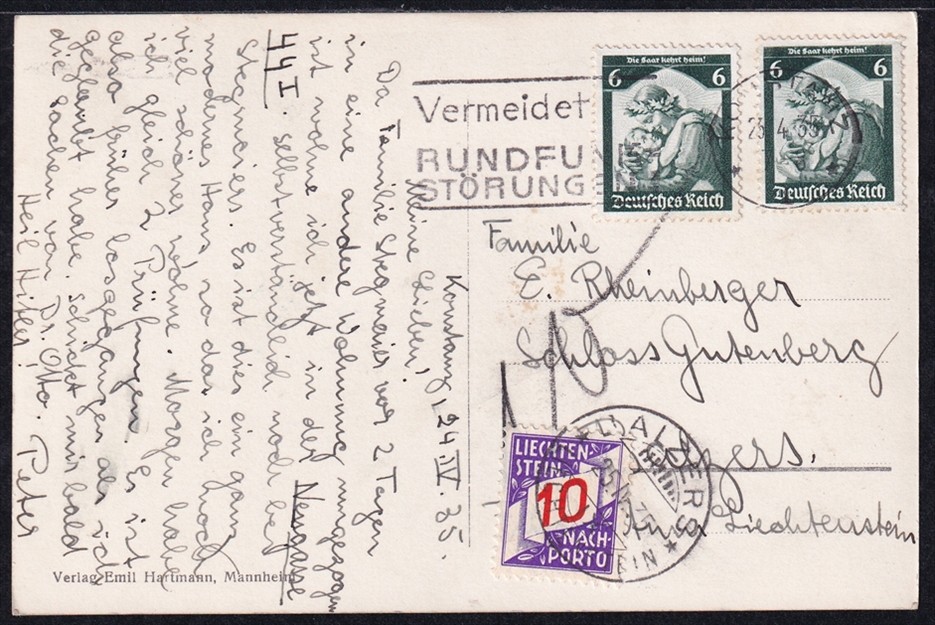 Konstanz, 24.IV.35.
Meine Lieben!
Da Familie Stegmaier vor 2 Tagen
in eine andere Wohnung umgezogen
ist wohne ich jetzt in der Neugasse
44 I. selbstverständlich noch bei
Stegmaiers. Es ist dies ein ganz
modernes Haus, so dass ich noch
viel schöner wohne. Morgen habe
ich gleich 2 Prüfungen. Es ist
also früher losgegangen als ich
geglaubt habe. Schickt mir bald
die Sachen von Dr. Otto.
Heil Hitler! Peter
Verlag Emil Hartmann, Mannheim
Vermeidet
RUNDFU
STÖRUNG
Die Saar kehrt heim!
6 6
Deutsches Reich
Die Saar kehrt heim!
6 6
Deutsches Reich
4.35
Familie
E. Rheinberger
Schloss Gutenberg
Balzers.
Liechtenstein
LIECHTEN-
STEIN
10
NACH-
PORTO
BALZERS